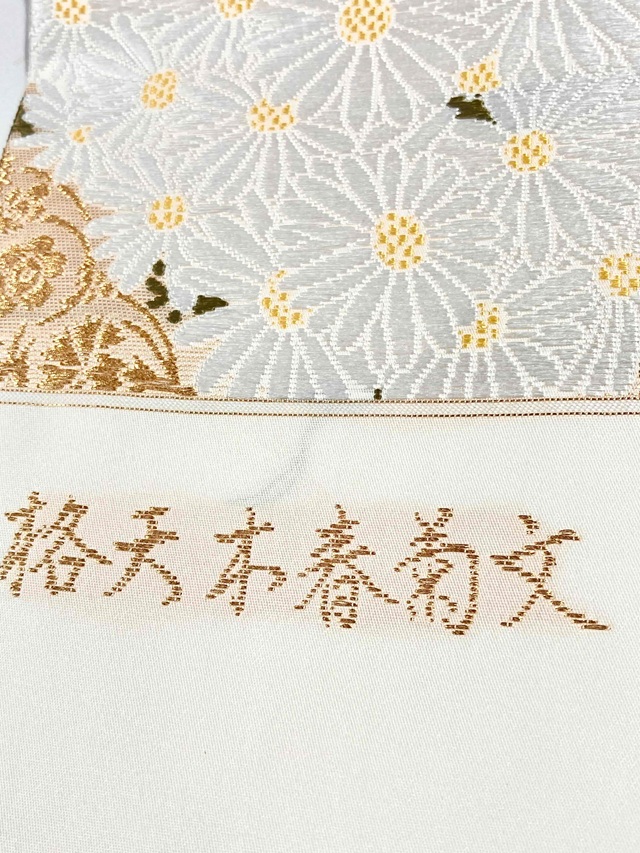 格天本春菊文